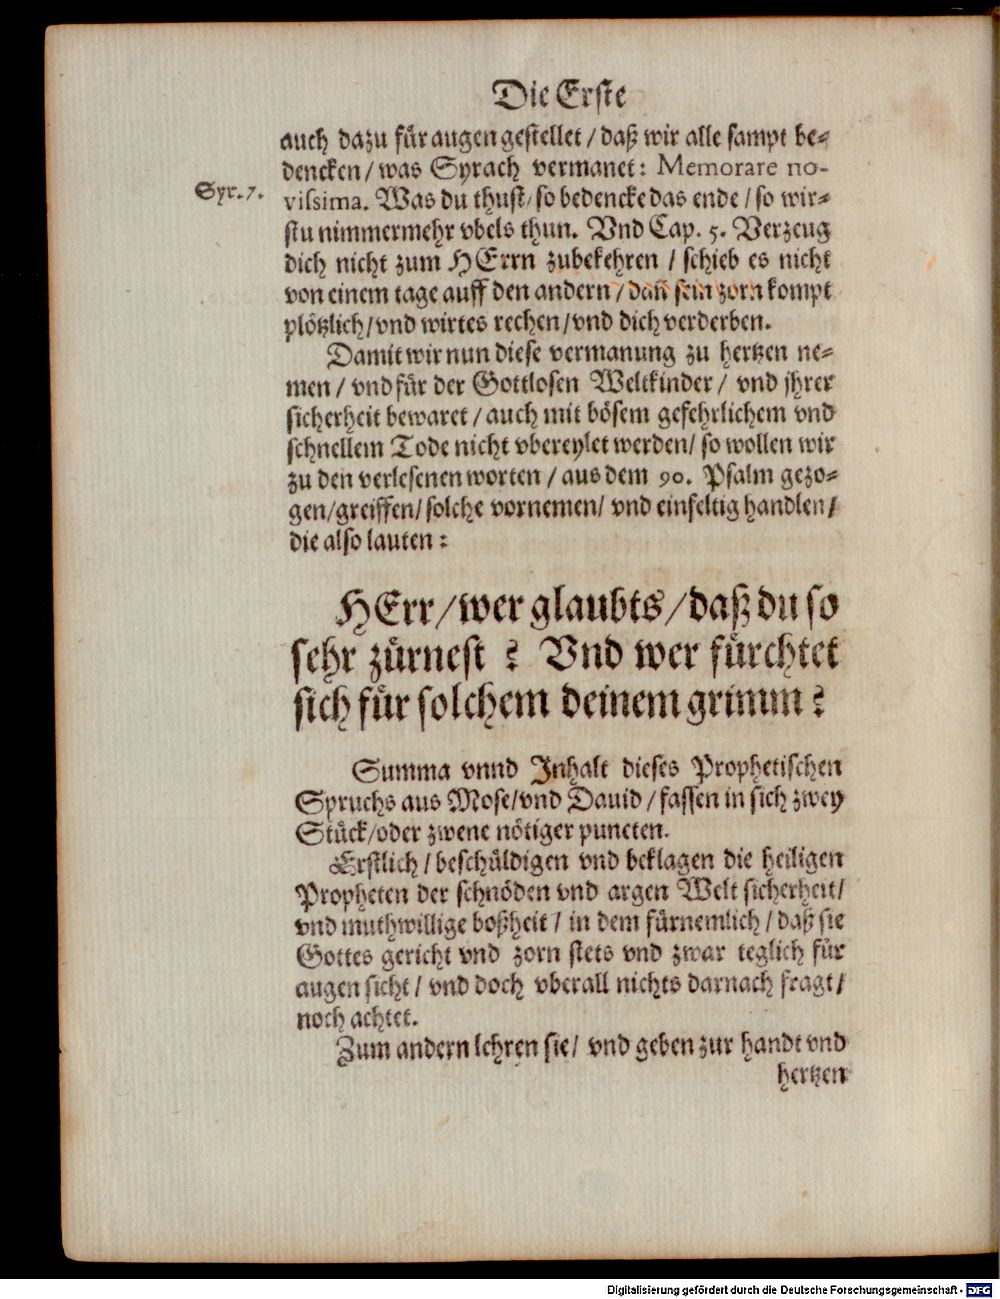 Die Erste
auch dazu für augen gestellet / daß wir alle sampt be⸗
dencken / was Syrach vermanet: Memorare no-
Syr. 7.
vissima. Was du thust / so bedencke das ende / so wir⸗
stu nimmermehr vbels thun. Vnd Cap. 5. Verzeug
dich nicht zum HErrn zubekehren / schieb es nicht
von einem tage auff den andern / dañ sein zorn kompt
plötzlich / vnd wirtes rechen / vnd dich verderben.
Damit wir nun diese vermanung zu hertzen ne⸗
men / vnd für der Gottlosen Weltkinder / vnd jhrer
sicherheit bewaret / auch mit bösem gefehrlichem vnd
schnellem Tode nicht vbereylet werden / so wollen wir
zu den verlesenen worten / aus dem 90. Psalm gezo⸗
gen / greiffen / solche vornemen / vnd einfeltig handlen /
die also lauten:
HErr / wer glaubts / daß du so
sehr zürnest? Vnd wer fürchtet
sich für solchem deinem grimm?
Summa vnnd Inhalt dieses Prophetischen
Spruchs aus Mose / vnd Dauid / fassen in sich zwey
Stück / oder zwene nötiger puncten.
Erstlich / beschüldigen vnd beklagen die heiligen
Propheten der schnöden vnd argen Welt sicherheit /
vnd muthwillige boßheit / in dem fürnemlich / daß sie
Gottes gericht vnd zorn stets vnd zwar teglich für
augen sicht / vnd doch vberall nichts darnach fragt /
noch achtet.
Zum andern lehren sie / vnd geben zur handt vnd
hertzen
Digitalisierung gefördert durch die Deutsche Forschungsgemeinschaft - DFG